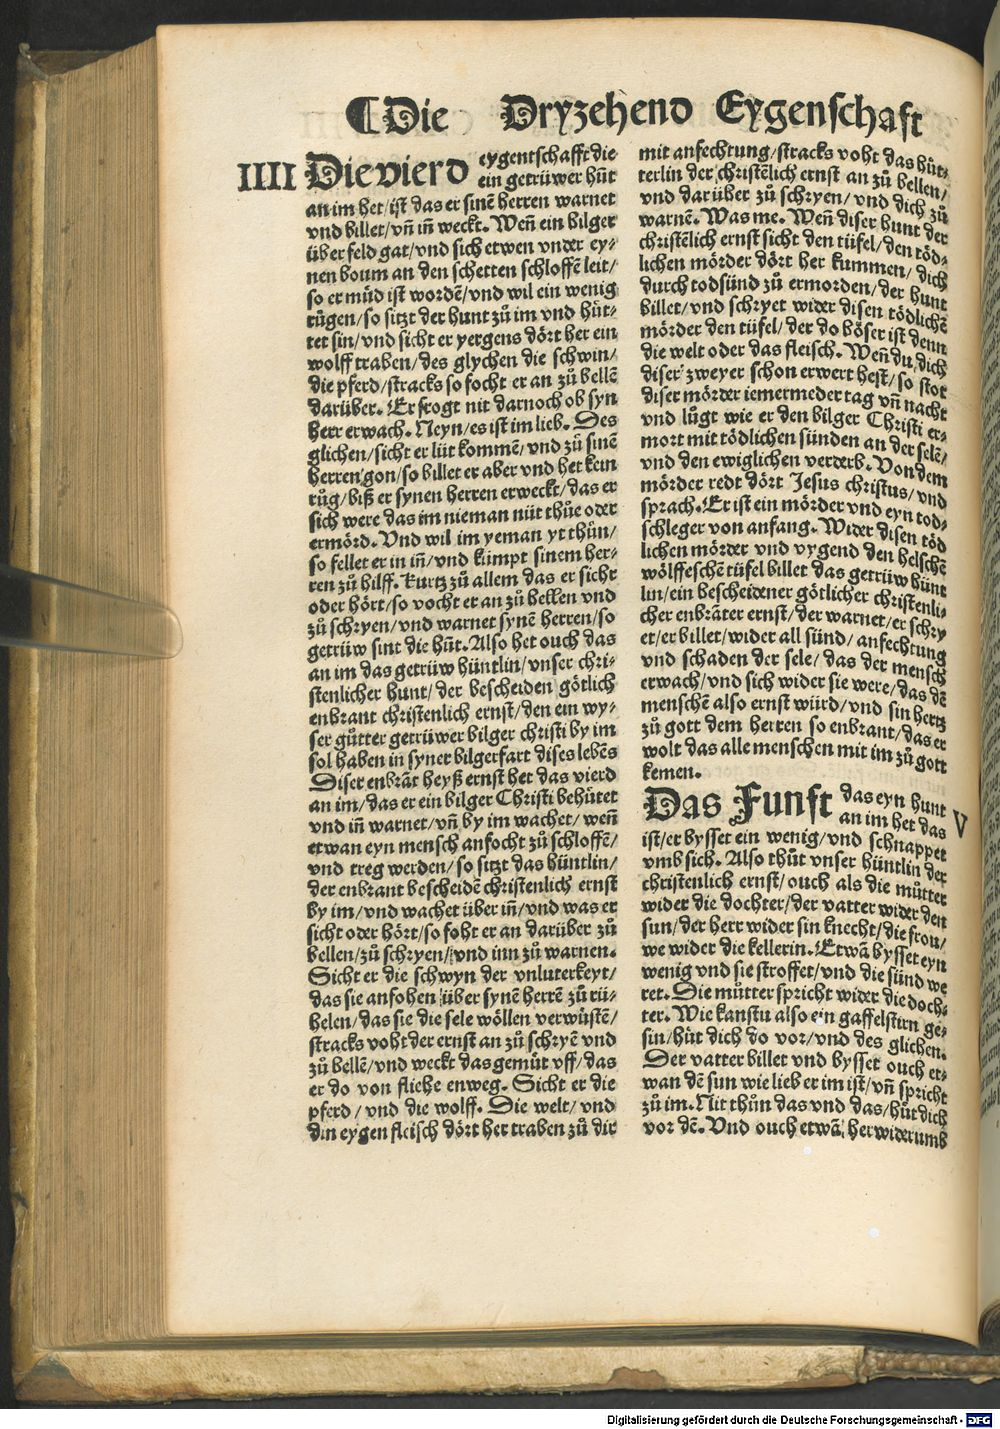 ¶ Die Dryzehend Eygenschafft
IIII Die vierd eygentschafft die
ein getrüwer hůt
an im het/ ist das er sinē herren warnet
vnd billet/ vñ iñ weckt. Weñ ein bilger
über feld gat/ vnd sich etwen vnder ey/
nen boum an den schetten schloffē leit/
so er müd ist wordē/ vnd wil ein wenig
růgen/ so sitzt der hunt zů im vnd hüt/
tet sin/ vnd sicht er yergens dört her ein
wolff traben/ des glychen die schwin/
die pferd/ stracks so focht er an zů bellē
darüber. Er frogt nit darnoch ob syn
herr erwach. Neyn/ es ist im lieb. Des
glichen/ sicht er lüt kommē/ vnd zů sinē
herren gon/ so billet er aber vnd het kein
růg/ biß er synen herren erweckt/ das er
sich were das im nieman nüt thüe oder
ermörd. Vnd wil im yeman yt thůn/
so fellet er in iñ/ vnd kumpt sinem her/
ren zů hilff. Kurtz zů allem das er sicht
oder hört/ so vocht er an zů bellen vnd
zů schryen/ vnd warnet synē herren/ so
getrüw sint die hūt. Also het ouch das
an im das getrüw hüntlin/ vnser chri/
stenlicher hunt/ der bescheiden götlich
enbrant christenlich ernst/ den ein wy/
ser gůtter getrüwer bilger christi by im
sol haben in syner bilgerfart dises lebēs
Diser enbrāt heyß ernst het das vierd
an im/ das er ein bilger Christi behütet
vnd iñ warnet/ vñ by im wachet/ weñ
etwan eyn mensch anfocht zů schloffē/
vnd treg werden/ so sitzt das hüntlin/
der enbrant bescheidē christenlich ernst
by im/ vnd wachet über iñ/ vnd was er
sicht oder hört/ so foht er an darüber zů
bellen/ zů schryen/ vnd inn zů warnen.
Sicht er die schwyn der vnluterkeyt/
das sie anfohen über synē herrē zů rü/
helen/ das sie die sele wöllen verwüstē/
stracks voht der ernst an zů schryē vnd
zů bellē/ vnd weckt das gemüt vff/ das
er do von fliehe enweg. Sicht er die
pferd/ vnd die wolff. Die welt/ vnd
din eygen fleisch dört her traben zů dir
mit anfechtung/ stracks voht das hüt/
terlin der christēlich ernst an zů bellen/
vnd darüber zů schryen/ vnd dich zů
warnē. Was me. Weñ diser hunt der
christēlich ernst sicht den tüfel/ den töd/
lichen mörder dört her kummen/ dich
durch todsünd zů ermorden/ der hunt
billet/ vnd schryet wider disen tödlichē
mörder den tüfel/ der do böser ist denn
die welt oder das fleisch. Weñ du dich
diser zweyer schon erwert hest/ so stot
diser mörder iemermeder tag vñ nacht
vnd lůgt wie er den bilger Christi er/
mort mit tödlichen sünden an der selē/
vnd den ewiglichen verderb. Von dem
mörder redt dört Jesus christus/ vnd
sprach. Er ist ein mörder vnd eyn tod/
schleger von anfang. Wider disen töd
lichen mörder vnd vygend den helschē
wölffeschē tüfel billet das getrüw hünt
lin/ ein bescheidener götlicher christenli/
cher enbrāter ernst/ der warnet/ er schry
et/ er billet/ wider all sünd/ anfechtung
vnd schaden der sele/ das der mensch
erwach/ vnd sich wider sie were/ das dē
menschē also ernst würd/ vnd sin hertz
zů gott dem herren so enbrant/ das er
wolt das alle menschen mit im zů gott
kemen.
Das Funft das eyn hunt V
an im het das
ist/ er bysset ein wenig/ vnd schnappet
vmb sich. Also thůt vnser hüntlin der
christenlich ernst/ ouch als die můtter
wider die dochter/ der vatter wider den
sun/ der herr wider sin knecht/ die frou/
we wider die kellerin. Etwā bysset eyn
wenig vnd sie stroffet/ vnd die sünd we
ret. Die můtter spricht wider die doch/
ter. Wie kanstu also ein gaffelstirn ge/
sin/ hüt dich do vor/ vnd des glichen.
Der vatter billet vnd bysset ouch et/
wan dē sun wie lieb er im ist/ vñ spricht
zů im. Nit thůn das vnd das/ hüt dich
vor dē. Vnd ouch etwā herwiderumb
Digitalisierung gefördert durch die Deutsche Forschungsgemeinschaft - DFG